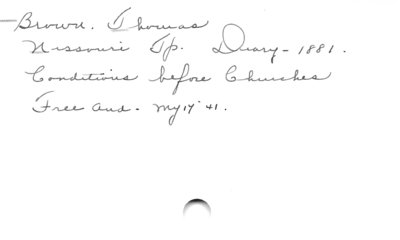 Brown. Thomas
Nissouri Tp. Diary - 1881.
Conditions before Churches
Free and. My 17 '41.